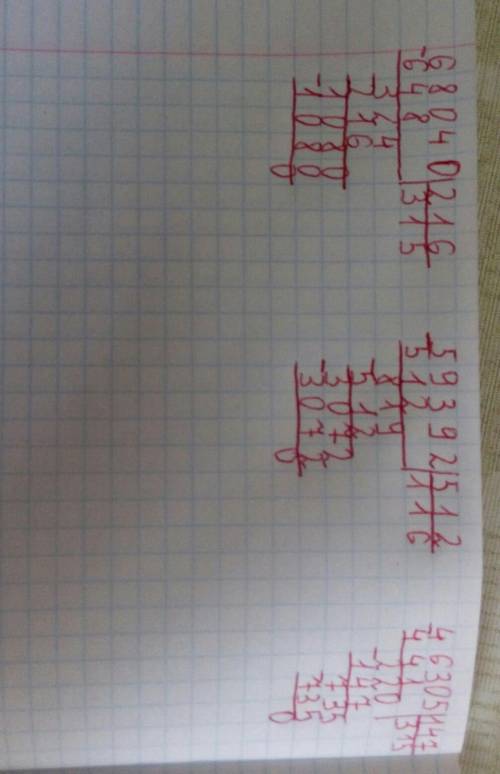 -68040|216
648 |315
-324
216
-1080
1080
0
-59392|512
512 |116
-819
512
-3072
3072
0
-46305|147
441 |315
-220
147
-735
735
0